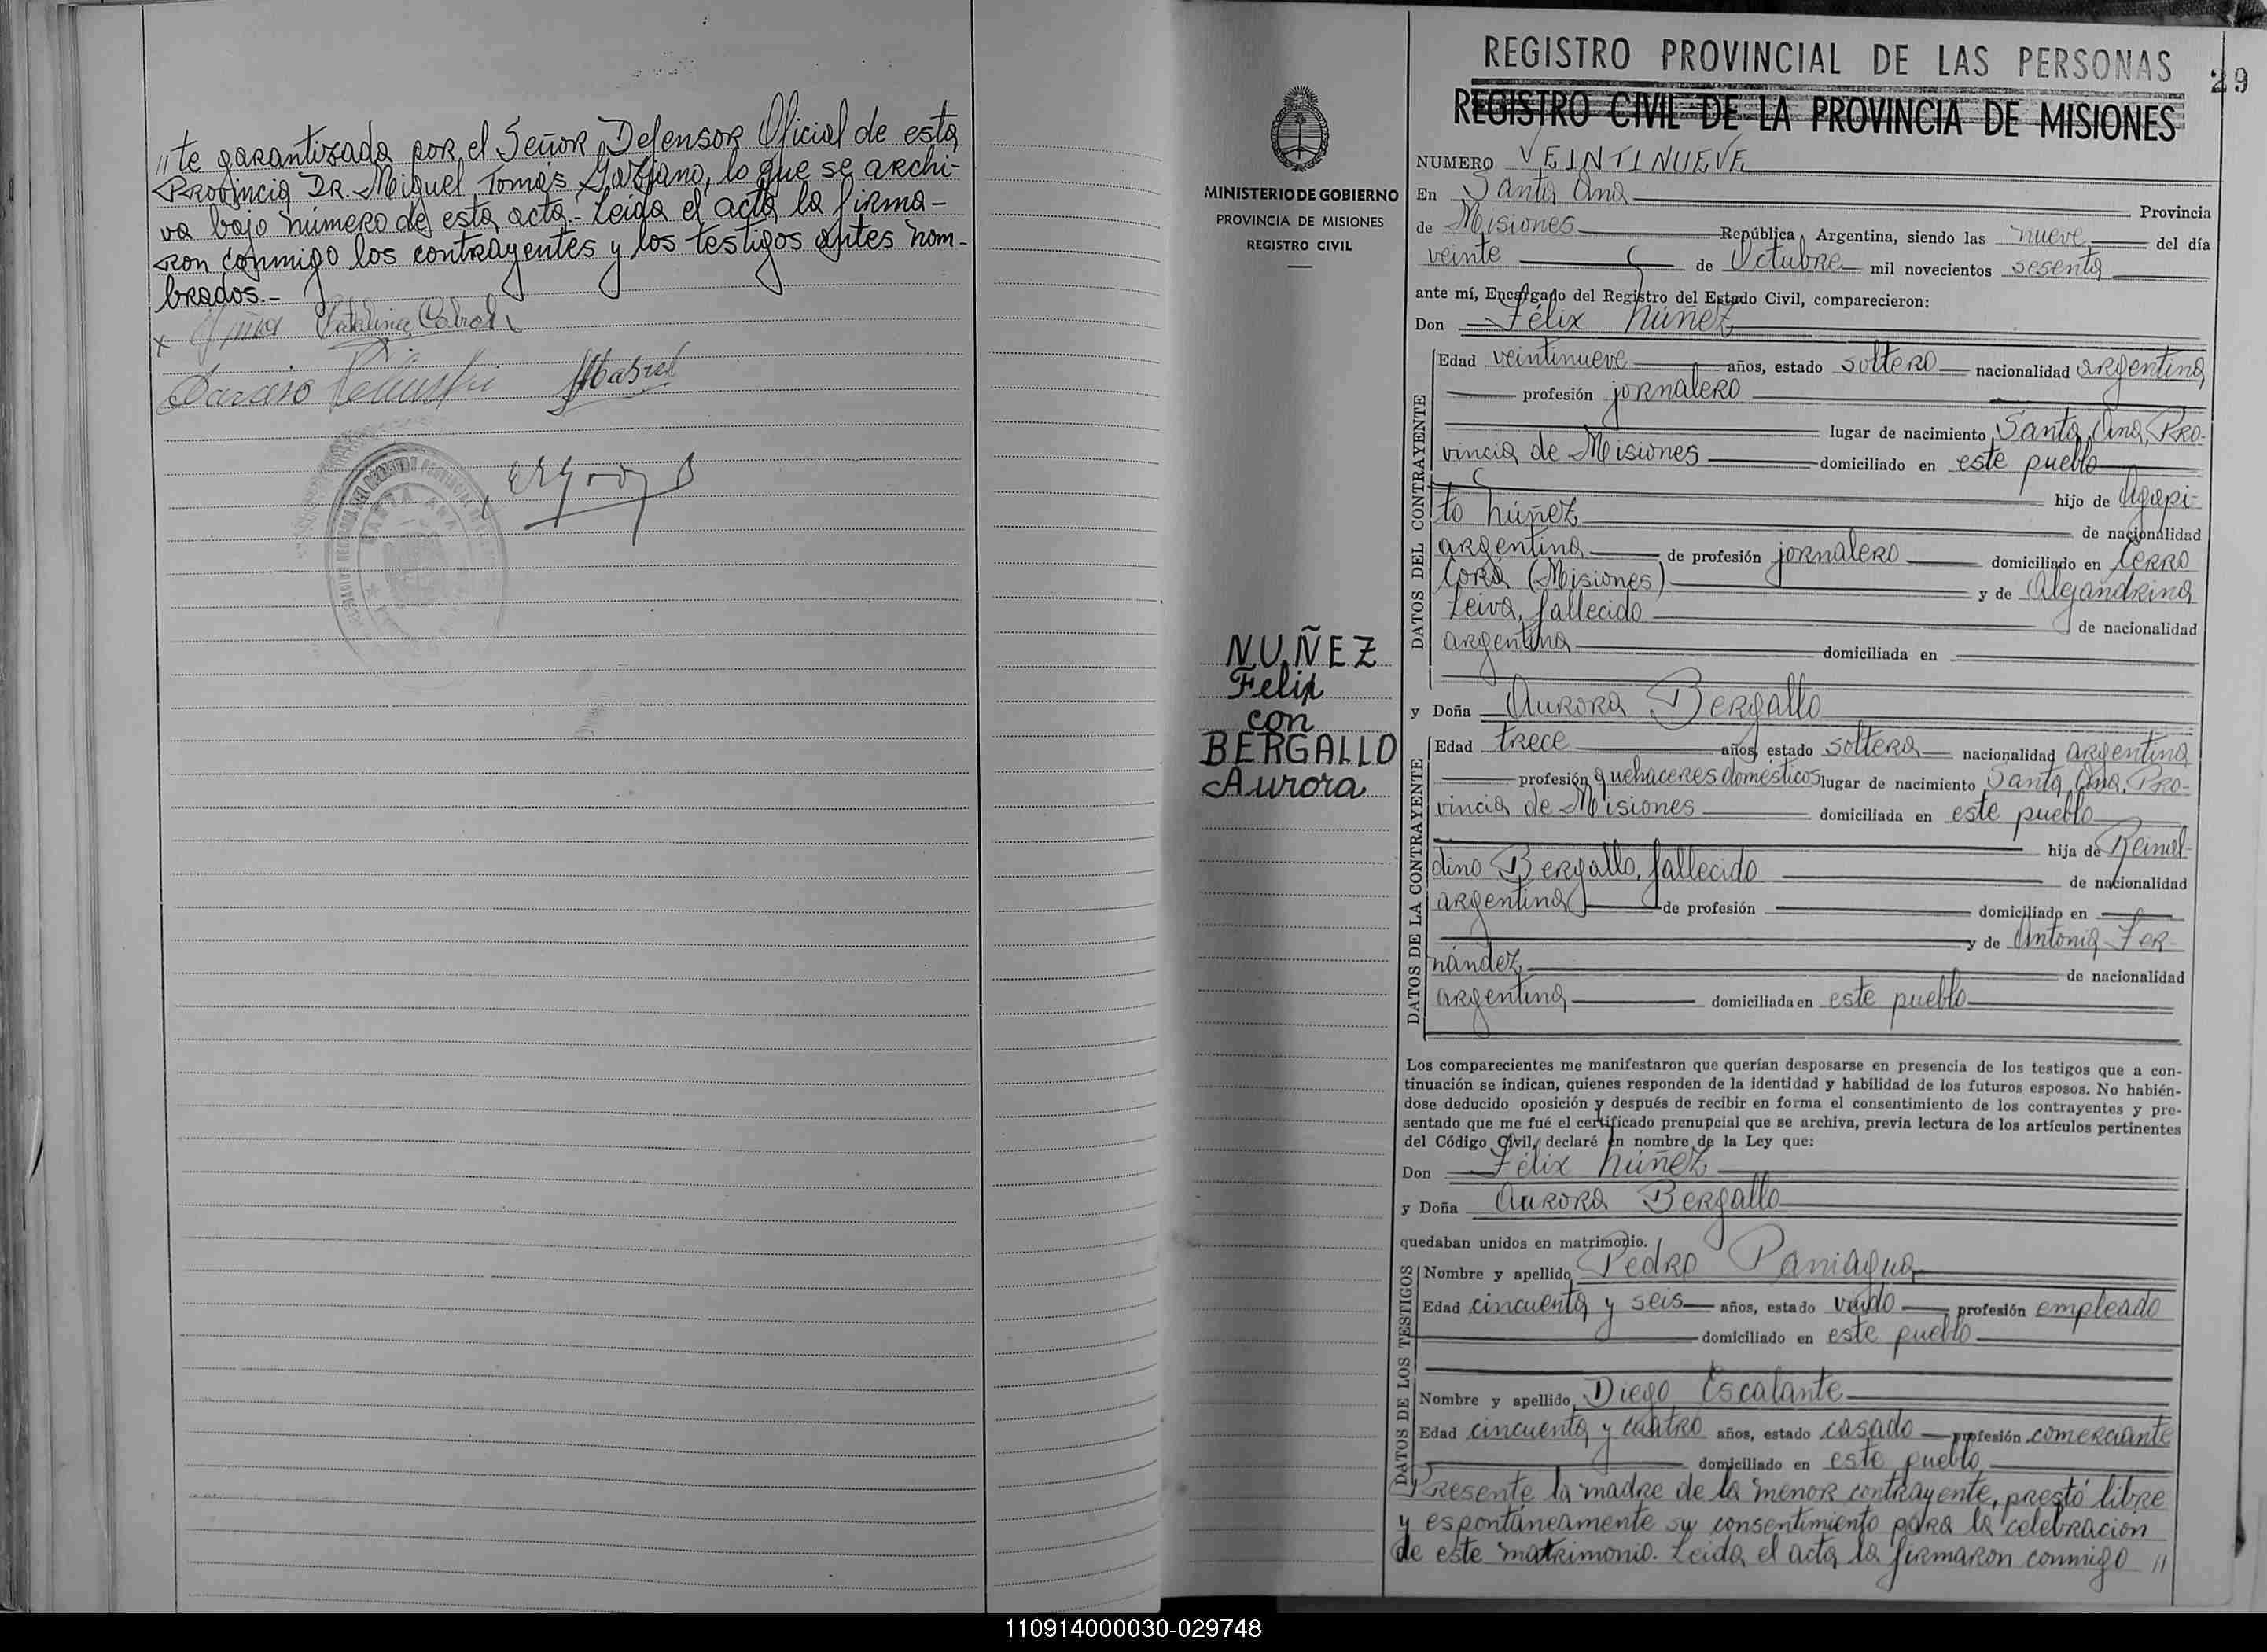 //te garantizada por el Señor Defensor Oficial de esta
Provincia Dr. Miguel Tomás
lo que se archi-
va bajo número de esta acta.- Leida el acta la firma-
ron conmigo los contrayentes y los testigos antes nom-
brados.-
x Catalina
SANTA ANA
REGISTRO PROVINCIAL DE LAS PERSONAS
29
REGISTRO CIVIL DE LA PROVINCIA DE MISIONES
MINISTERIO DE GOBIERNO
PROVINCIA DE MISIONES
REGISTRO CIVIL
NUÑEZ
Felix
con
BERGALLO
Aurora
NUMERO VEINTINUEVE
En Santa Ana Provincia
de Misiones República Argentina, siendo las nueve del día
veinte de Octubre mil novecientos sesenta
ante mí, Encargado del Registro del Estado Civil, comparecieron:
Don Félix Núñez
DATOS DEL CONTRAYENTE
Edad veintinueve años, estado soltero nacionalidad argentina
profesión jornalero
lugar de nacimiento Santa Ana, Pro-
vincia de Misiones domiciliado en este pueblo
hijo de Agapi-
to Núñez de nacionalidad
argentina de profesión jornalero domiciliado en Cerro
Corá (Misiones) y de Alejandrina
Leiva, fallecido de nacionalidad
argentina domiciliada en
y Doña Aurora Bergallo
DATOS DE LA CONTRAYENTE
Edad trece años, estado soltera nacionalidad argentina
profesión quehaceres domésticos lugar de nacimiento Santa Ana, Pro-
vincia de Misiones domiciliada en este pueblo
hija de Reinal-
dino Bergallo, fallecido de nacionalidad
argentina de profesión domiciliado en
y de Antonia Fer-
nández de nacionalidad
argentina domiciliada en este pueblo
Los comparecientes me manifestaron que querían desposarse en presencia de los testigos que a con-
tinuación se indican, quienes responden de la identidad y habilidad de los futuros esposos. No habién-
dose deducido oposición y después de recibir en forma el consentimiento de los contrayentes y pre-
sentado que me fué el certificado prenupcial que se archiva, previa lectura de los artículos pertinentes
del Código Civil, declaré en nombre de la Ley que:
Don Félix Núñez
y Doña Aurora Bergallo
quedaban unidos en matrimonio.
DATOS DE LOS TESTIGOS
Nombre y apellido Pedro Paniagua
Edad cincuenta y seis años, estado viudo profesión empleado
domiciliado en este pueblo
Nombre y apellido Diego Escalante
Edad cincuenta y cuatro años, estado casado profesión comerciante
domiciliado en este pueblo
Presente la madre de la menor contrayente, prestó libre
y espontáneamente su consentimiento para la celebración
de este matrimonio. Leida el acta la firmaron conmigo //
110914000030-029748